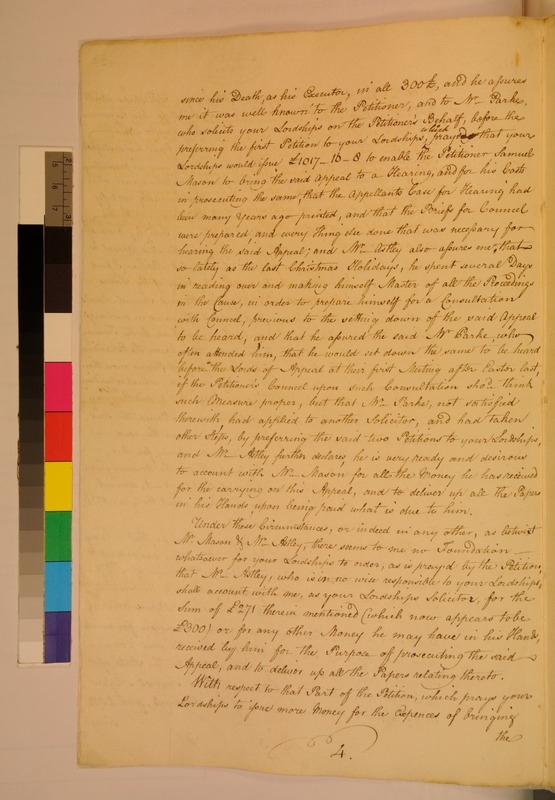 since his Death, as his Executor, in all 300£, and he assures
me it was well known to the Petitioner, and to Mr. Parke,
who solicits your Lordships on the Petitioner's Behalf, before the
preferring the first Petition to your Lordships, prayed that your
Lordships would issue £1017-16-8 to enable the Petitioner Samuel
Mason to bring the said Appeal to a Hearing, and for his Costs
in prosecuting the same, that the Appellants Case for Hearing had
been many Years ago printed, and that the Briefs for Council
were prepared, and every thing else done that was necessary for
hearing the said Appeal; and Mr. Astley also assures me, that
so lately as the last Christmas Holidays, he spent several Days
in reading over and making himself Master of all the Proceedings
in the Cause, in order to prepare himself for a Consultation
with Council, previous to the setting down of the said Appeal
to be heard, and that he assured the said Mr. Parke, who
often attended him, that he would set down the same to be heard
before the Lords of Appeal at their first Meeting after Easter last,
if the Petitioner's Council upon such Consultation sho'd think
such Measure proper, but that Mr. Parke, not satisfied
therewith had applied to another Solicitor, and had taken
other Steps, by preferring the said two Petitions to your Lordships,
and Mr. Astley further declares, he is very ready and desirous
to account with Mr. Mason for all the Money he has received
for the carrying on this Appeal, and to deliver up all the Papers
in his Hands upon being paid what is due to him.
Under these Circumstances, or indeed in any other, as betwixt
Mr. Mason & Mr. Astley, there seems to me no Foundation
whatsoever for your Lordships to order, as is pray'd by the Petition,
that Mr. Astley, who is in no wise responsible to your Lordships,
shall account with me, as your Lordships Solicitor, for the
Sum of £271 therein mentioned (which now appears to be
£300) or for any other Money he may have in his Hands,
received by him for the Purpose off prosecuting the said
Appeal, and to deliver up all the Papers relating thereto.
With respect to that Part of the Petition, which prays your
Lordships to issue more Money for the Expences of bringing
the
4.